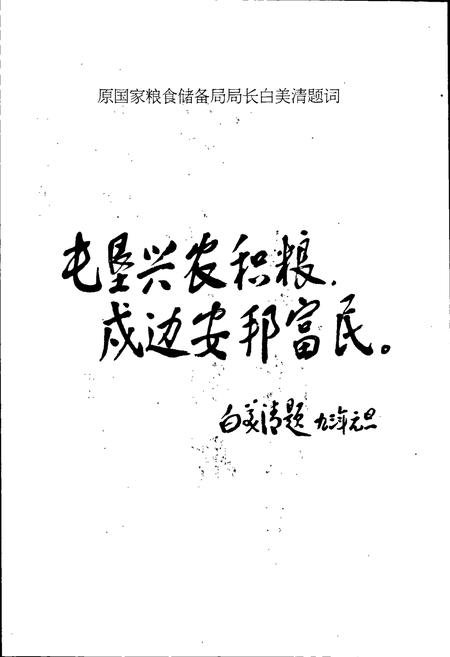 原国家粮食储备局局长白美清题词
屯垦兴农积粮.
戍边安邦富民。
白美清题 九三年元旦